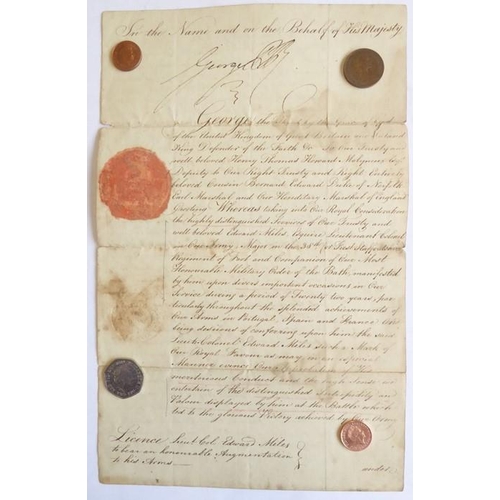 In the Name and on the Behalf of His Majesty
George P R
George the Third by the Grace of God
of the United Kingdom of Great Britain and Ireland
King Defender of the Faith &c To Our Trusty and
well beloved Henry Thomas Howard Molyneux Esqr
Deputy to Our Right Trusty and Right Entirely
beloved Cousin Bernard Edward Duke of Norfolk
Earl Marshal and Our Hereditary Marshal of England
Greeting Whereas taking into Our Royal Consideration
the highly distinguished Services of Our Trusty and
well beloved Edward Miles Esquire Lieutenant Colonel
in Our Army, Major in the 38th or First Staffordshire
Regiment of Foot and Companion of Our Most
Honourable Military Order of the Bath, manifested
by him upon divers important occasions in Our
Service during a period of Twenty two years, par
ticularly throughout the splendid achievements of
Our Arms in Portugal Spain and France, and
being desirous of conferring upon him the said
Lieut: Colonel Edward Miles such a Mark of
Our Royal Favour as may in an especial
Manner evince Our
Conduct and the high sense
entertain of the distinguished intrepidity and
Valour displayed by him at the Battle
led to the glorious Victory achieved by Our Army
Licence Lieut Col Edward Miles
to bear an honourable Augmentation
to his Arms
under